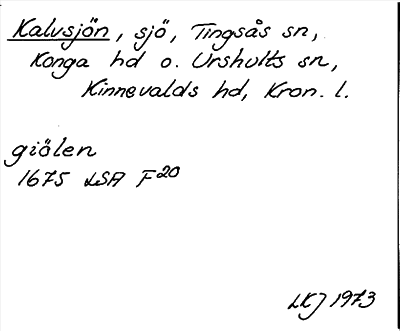 Kalvsjön, sjö, Tingsås sn,
Konga hd o. Urshults sn,
Kinnevalds hd, Kron. l.
giölen
1675 LSA F20
LKJ 1973